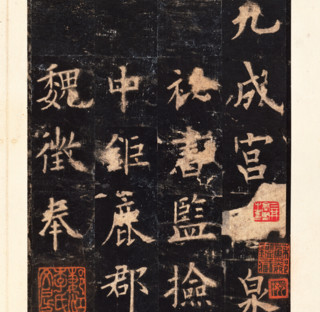 九成宮泉
祕書監撿
中鉅鹿郡
魏徵奉